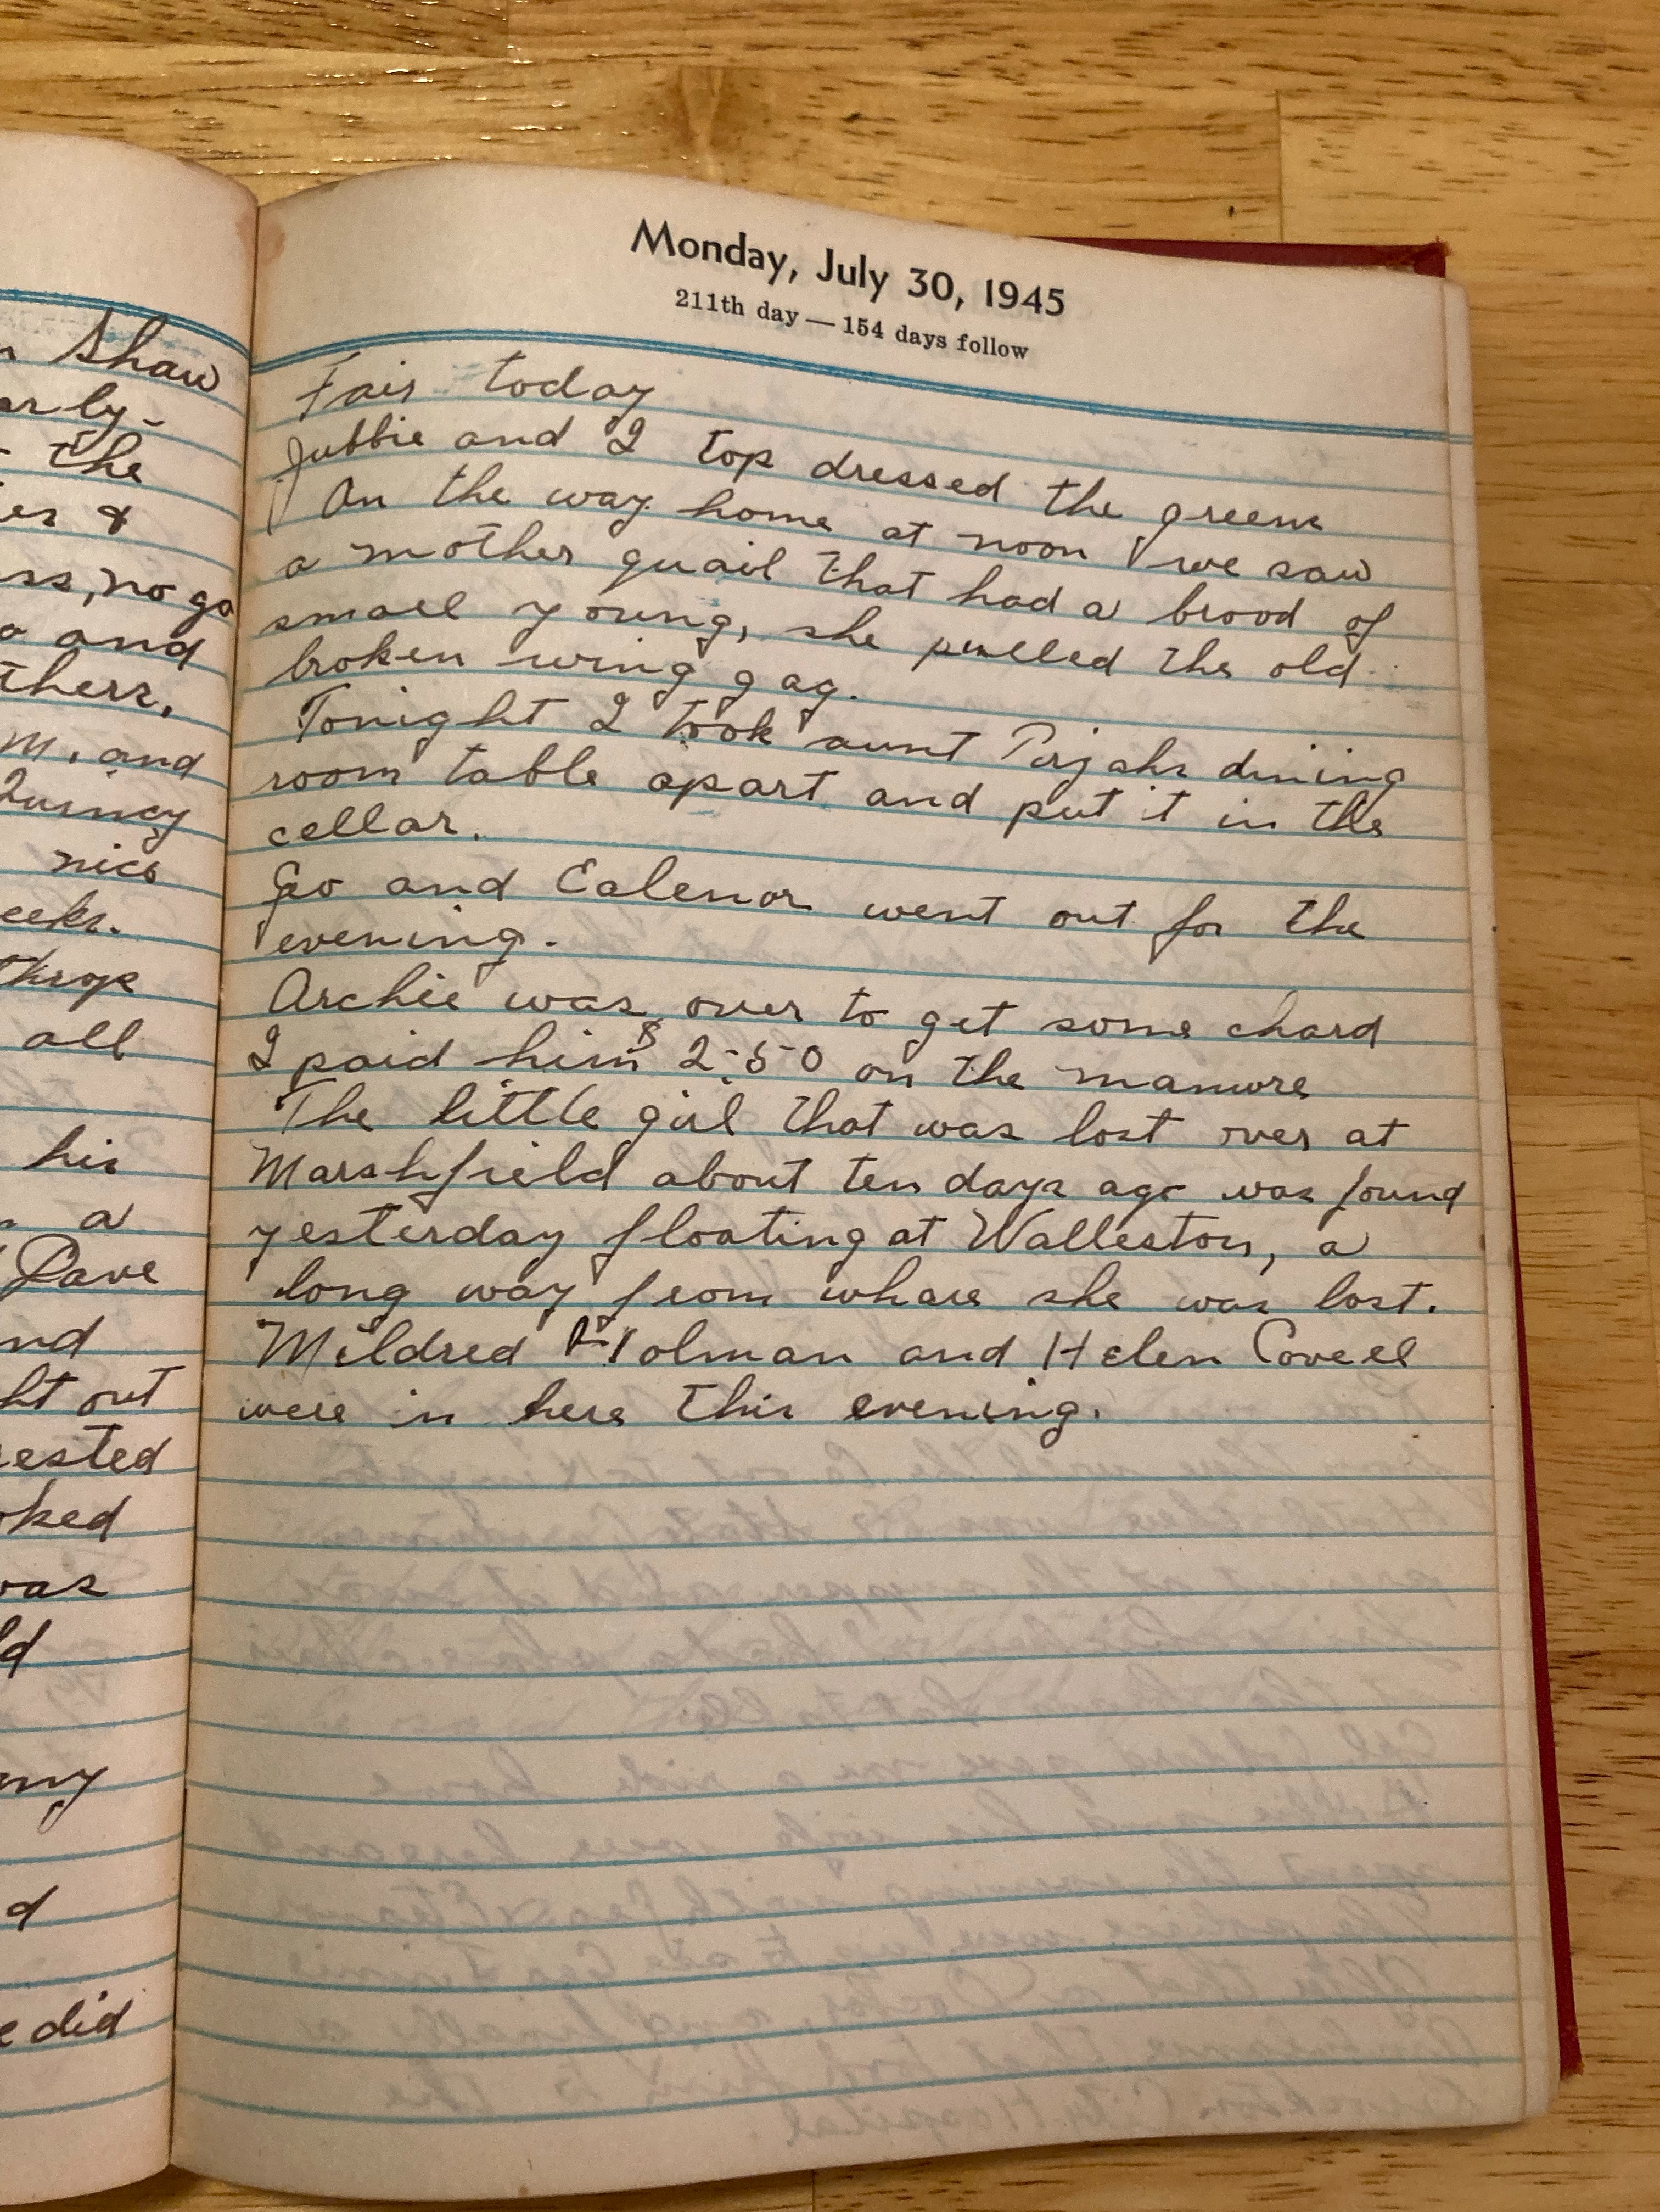 Shaw
rly-
the
er &
ss, no go
and
thers,
m. and
Quincy
nice
eeks.
throp
all
his
a
Dave
nd
ht out
ested
oked
was
ld
my
d
e did
Monday, July 30, 1945
211th day — 154 days follow
Fair today
Jubbie and I top dressed the greens
On the way home at noon we saw
a mother quail that had a brood of
small young, she pulled the old
broken wing gag.
Tonight I took aunt dining
room table apart and put it in the
cellar.
Geo and Ealenor went out for the
evening.
Archie was over to get some chard
I paid him $2.50 on the manure
The little girl that was lost over at
Marshfield about ten days ago was found
yesterday floating at Walleston, a
long way from whare she was lost.
Mildred Holman and Helen Covell
were in here this evening.